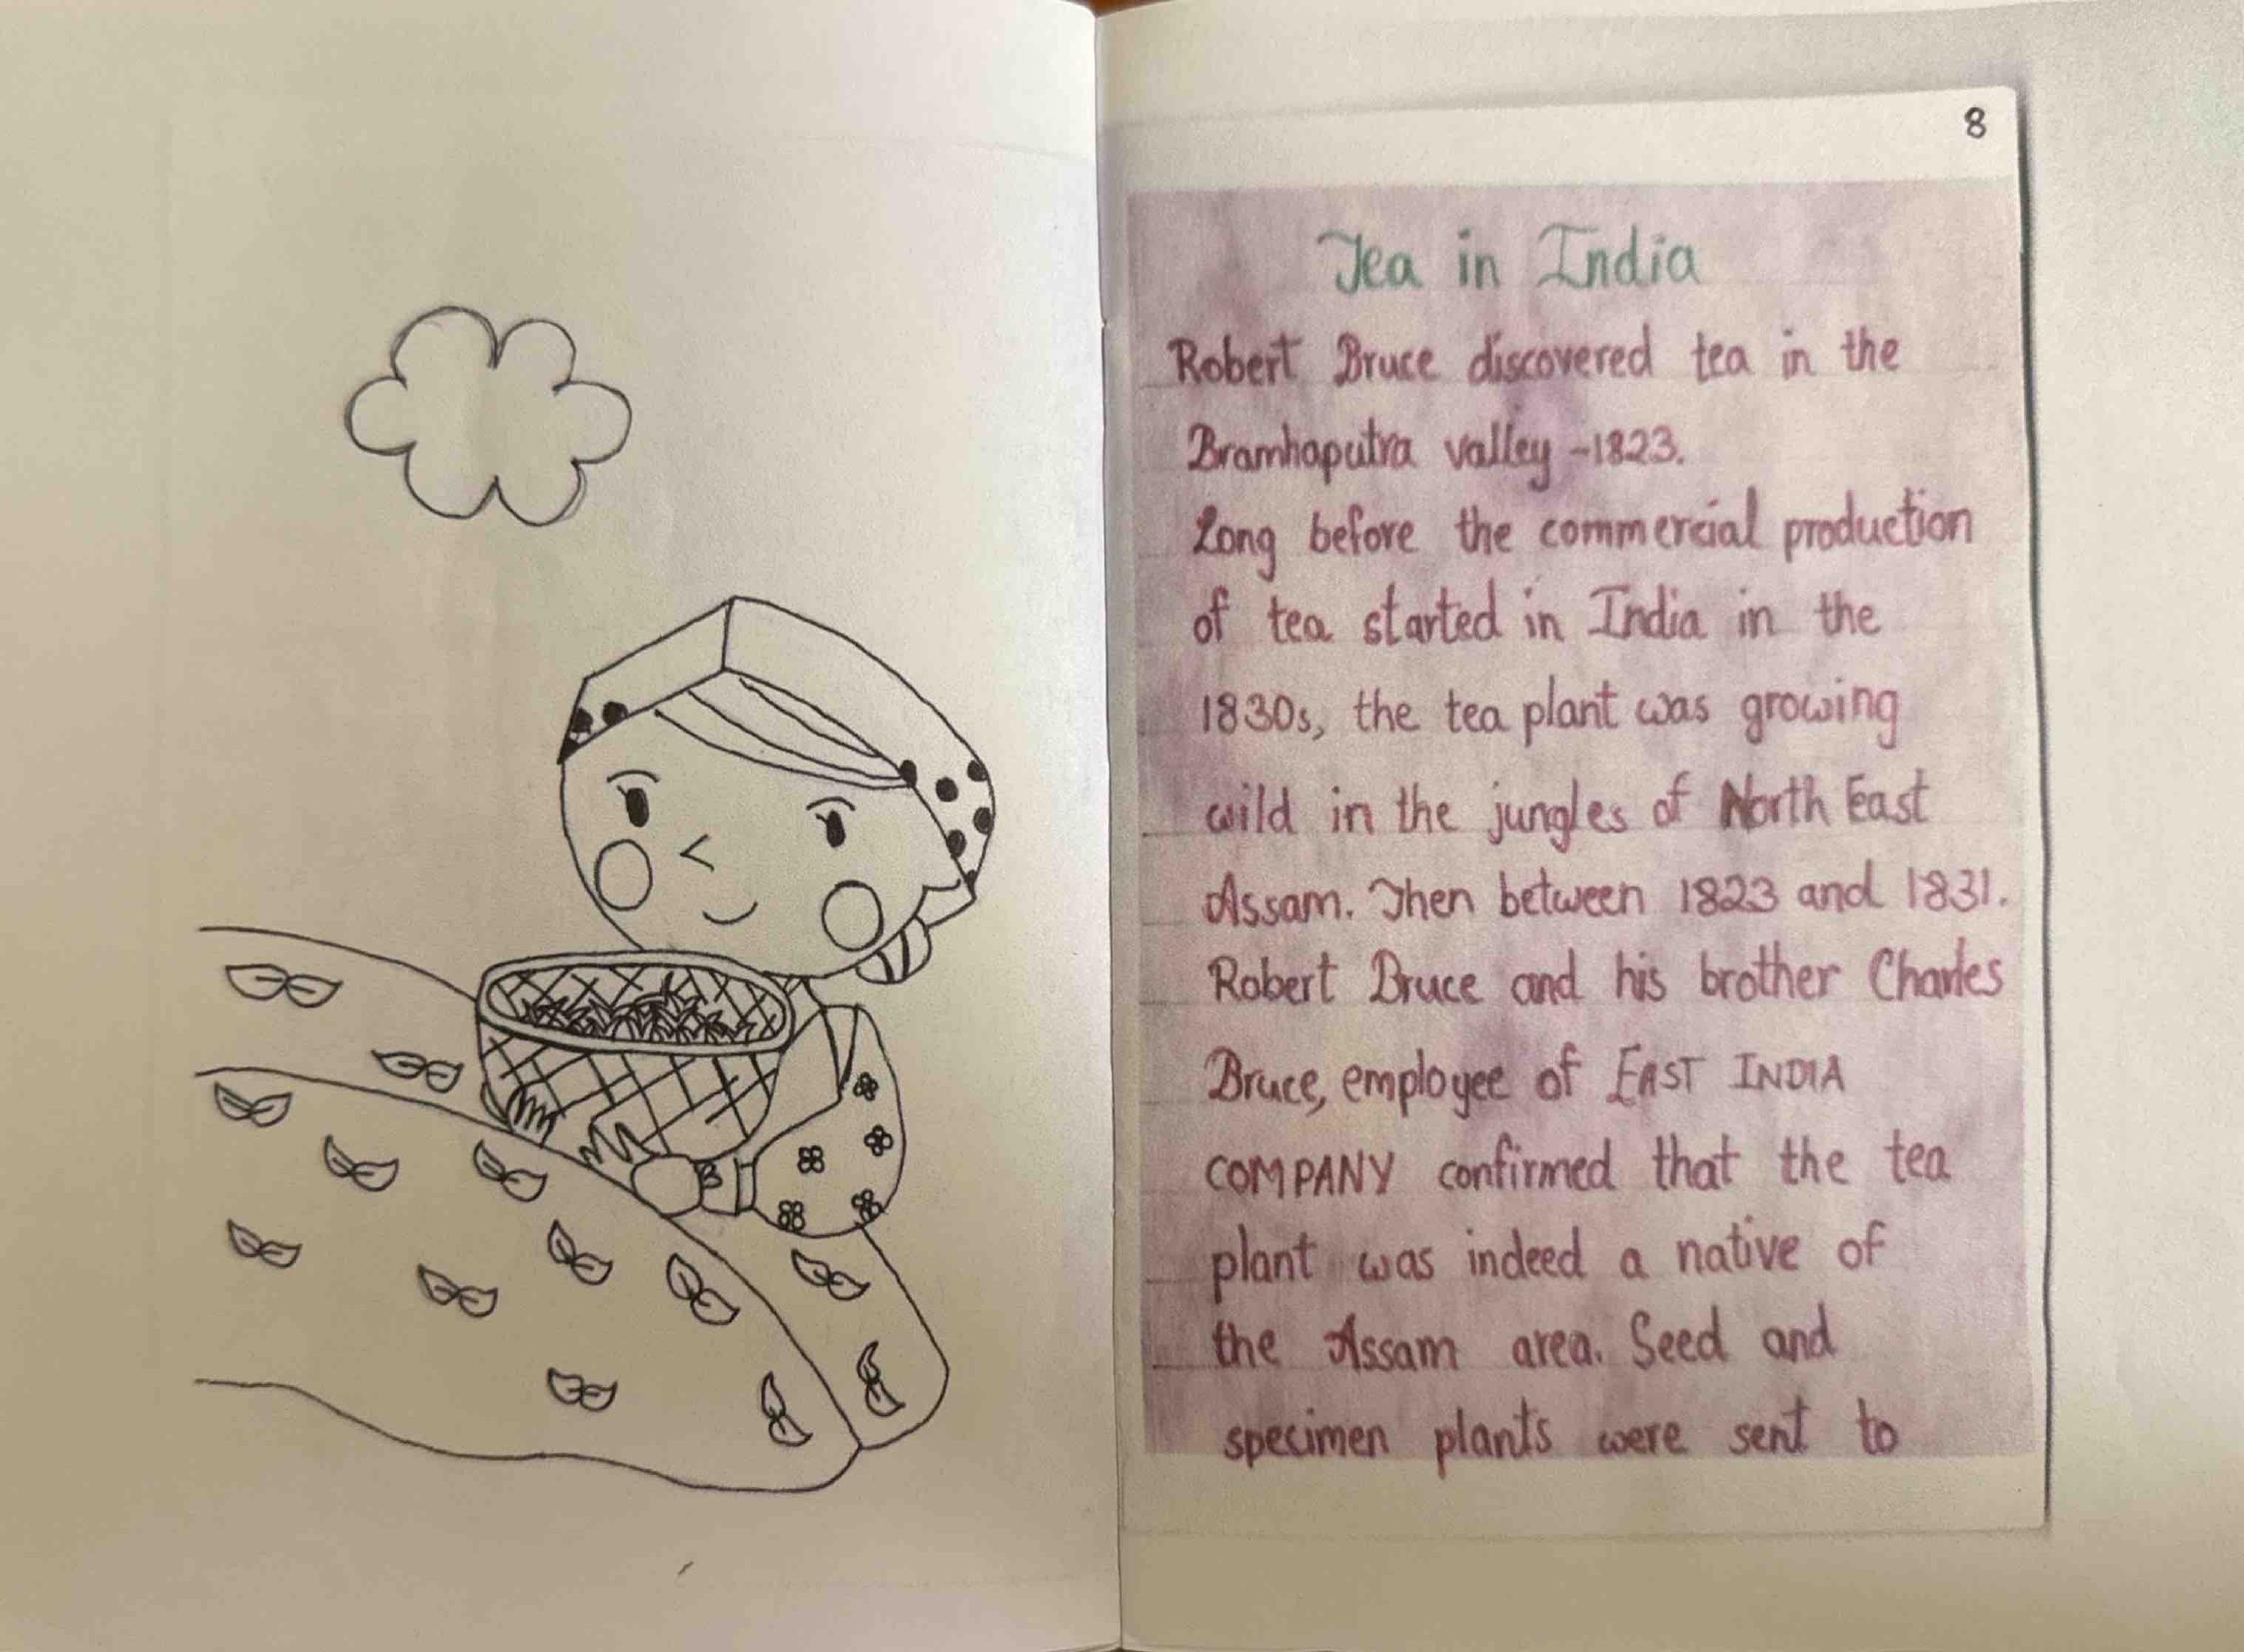 8
Tea in India
Robert Bruce discovered tea in the
Bramhaputra valley -1823.
Long before the commercial production
of tea started in India in the
1830s, the tea plant was growing
wild in the jungles of North East
Assam. Then between 1823 and 1831.
Robert Bruce and his brother Charles
Bruce, employee of EAST INDIA
COMPANY confirmed that the tea
plant was indeed a native of
the Assam area. Seed and
specimen plants were sent to